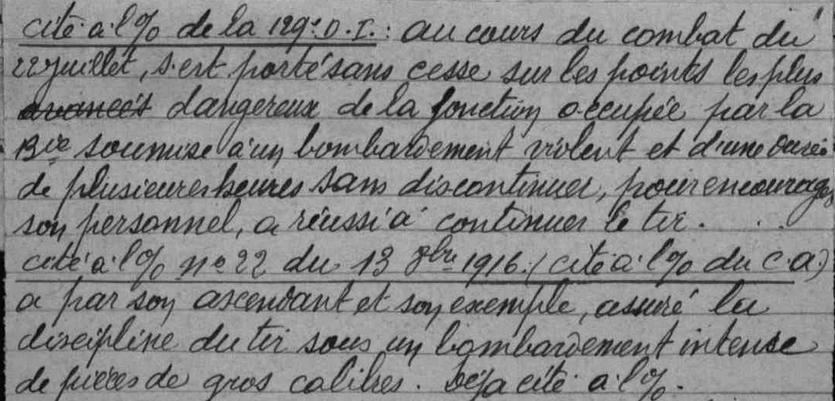 cité à l'o/o de la 129e D.I. : au cours du combat du
22 juillet, s'est porté sans cesse sur les points les plus
avancés dangereux de la fonction occupée par la
Bie soumise à un bombardement violent et d'une durée
de plusieures heures sans discontinuer, pour encourager
son personnel, a réussi à continuer le tir.
cité à l'o/o no 22 du 13 8bre 1916. (cité à l'o/o du C.A)
a par son ascendant et son exemple, assuré la
discipline du tir sous un bombardement intense
de pièces de gros calibres. Déjà cité à l'o/o.